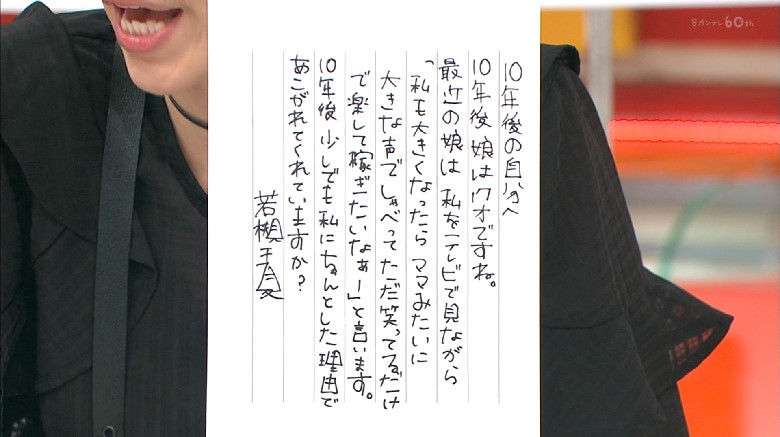 10年後の自分へ
10年後 娘は17才ですね。
最近の娘は 私をテレビで見ながら
「私も大きくなったら ママみたいに
大きな声でしゃべってただ笑ってるだけ
で楽して稼ぎたいなぁー」と言います。
10年後 少しでも私にちゃんとした理由で
あこがれてくれていますか?
若槻千夏
8カンテレ60th